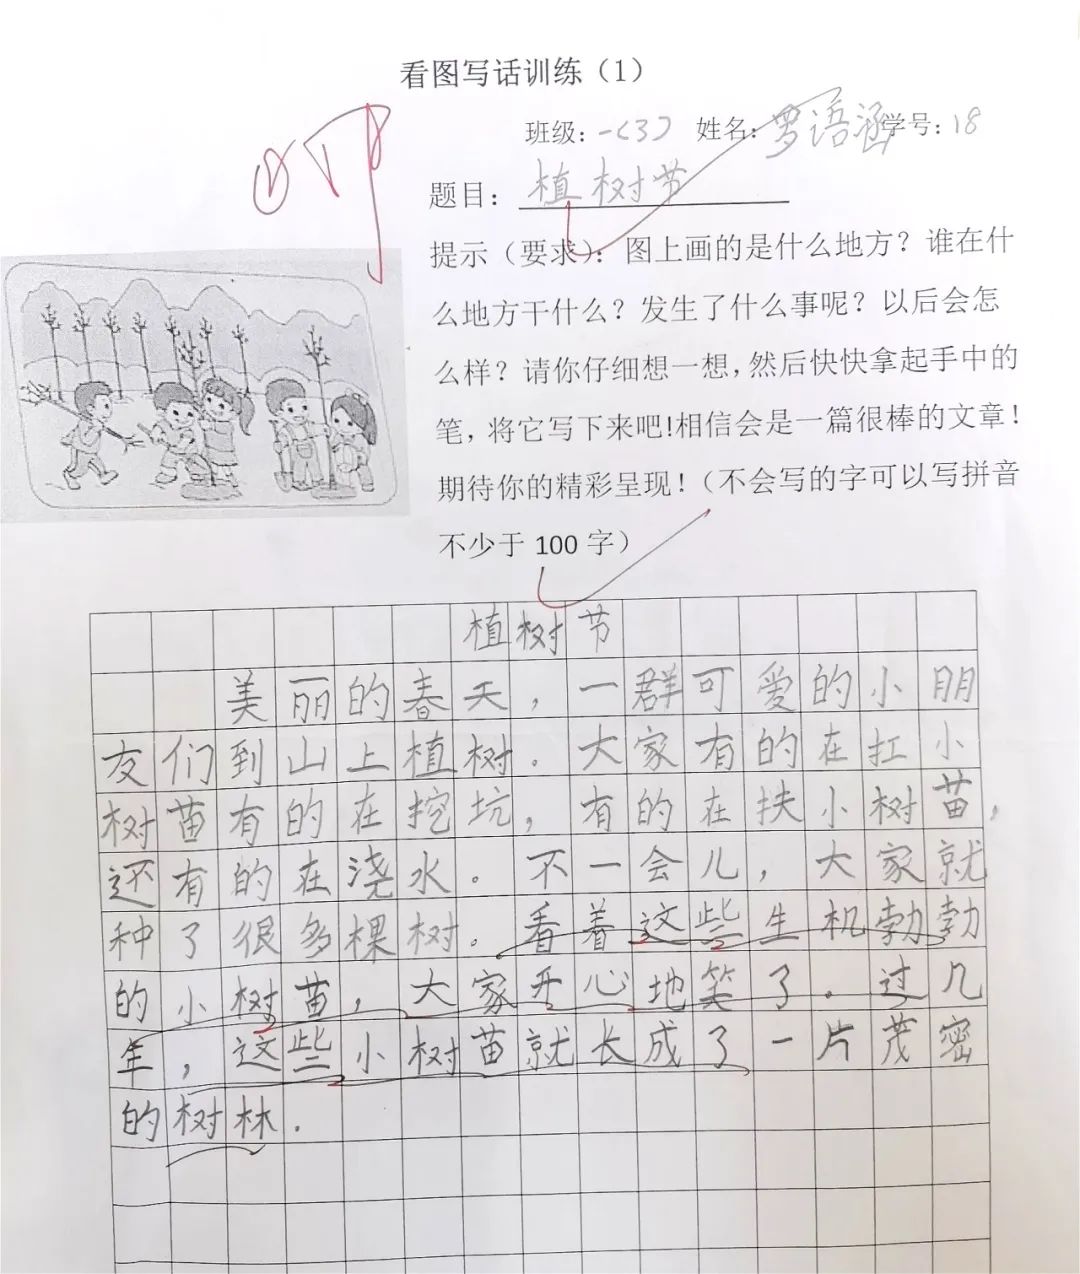 看图写话训练（1）
班级：一（3） 姓名：罗语涵 学号：18
题目：植树节
提示（要求）：图上画的是什么地方？谁在什
么地方干什么？发生了什么事呢？以后会怎
么样？请你仔细想一想，然后快快拿起手中的
笔，将它写下来吧！相信会是一篇很棒的文章！
期待你的精彩呈现！（不会写的字可以写拼音
不少于 100 字）
植树节
美丽的春天，一群可爱的小朋
友们到山上植树。大家有的在扛小
树苗有的在挖坑，有的在扶小树苗，
还有的在浇水。不一会儿，大家就
种了很多棵树。看着这些生机勃勃
的小树苗，大家开心地笑了。过几
年，这些小树苗就长成了一片茂密
的树林.